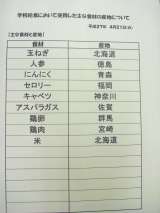 学校給食において使用した主な食材の産地について
平成27年 4月21日(火)
【主な食材と産地】
食材 産地
玉ねぎ 北海道
人参 徳島
にんにく 青森
セロリー 福岡
キャベツ 神奈川
アスパラガス 佐賀
鶏卵 群馬
鶏肉 宮崎
米 北海道